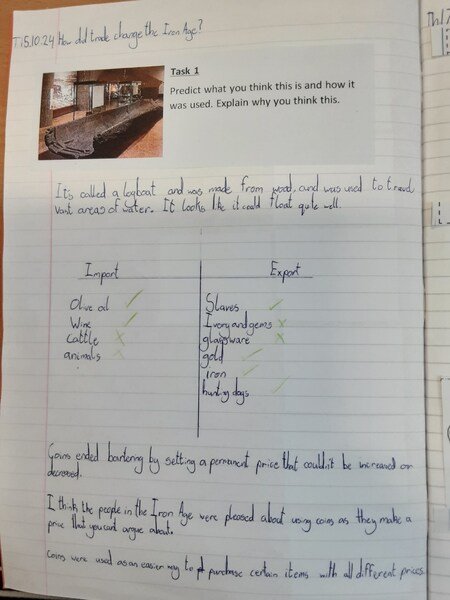 T:15.10.24 How did trade change the Iron Age?
Task 1
Predict what you think this is and how it
was used. Explain why you think this.
It's called a logboat and was made from wood, and was used to travel
vast areas of water. It looks like it could float quite well.
Import Export
Olive oil Slaves
Wine Ivory and gems
cattle glassware
animals gold
iron
hunting dogs
Coins ended bartering by setting a permanent price that couldn't be increased or
decreased.
I think the people in the Iron Age were pleased about using coins as they make a
price that you cant argue about.
Coins were used as an easier way to purchase certain items with all different prices.